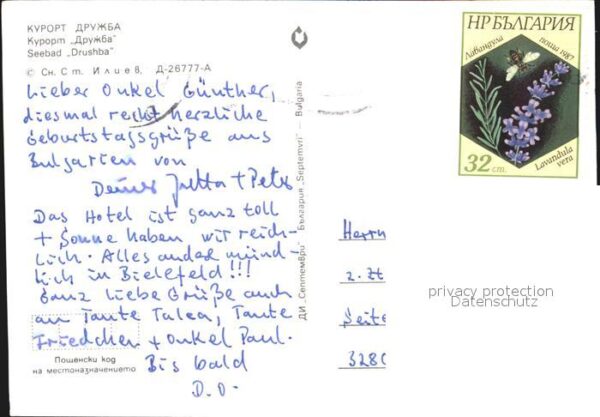 КУРОРТ ДРУЖБА
Курорт „Дружба"
Seebad „Drushba"
© Сн. Ст. Илиев, Д-26777-А
Lieber Onkel Günther,
diesmal recht herzliche
Geburtstagsgrüße aus
Bulgarien von
Deiner Jutta + Peter
Das Hotel ist ganz toll
+ Sonne haben wir reich-
lich. Alles andere münd-
lich in Bielefeld!!!
Ganz liebe Grüße auch
an Tante Talea, Tante
Friedchen + Onkel Paul.
Bis bald
D.O.
Пощенски код
на местоназначението
ДИ „Септември" България „Septemvri" — Bulgaria
НР БЪЛГАРИЯ
Лавандула
поща 1987
Lavandula
vera
32 ст.
Herrn
z. Zt
Seite
328
privacy protection
Datenschutz